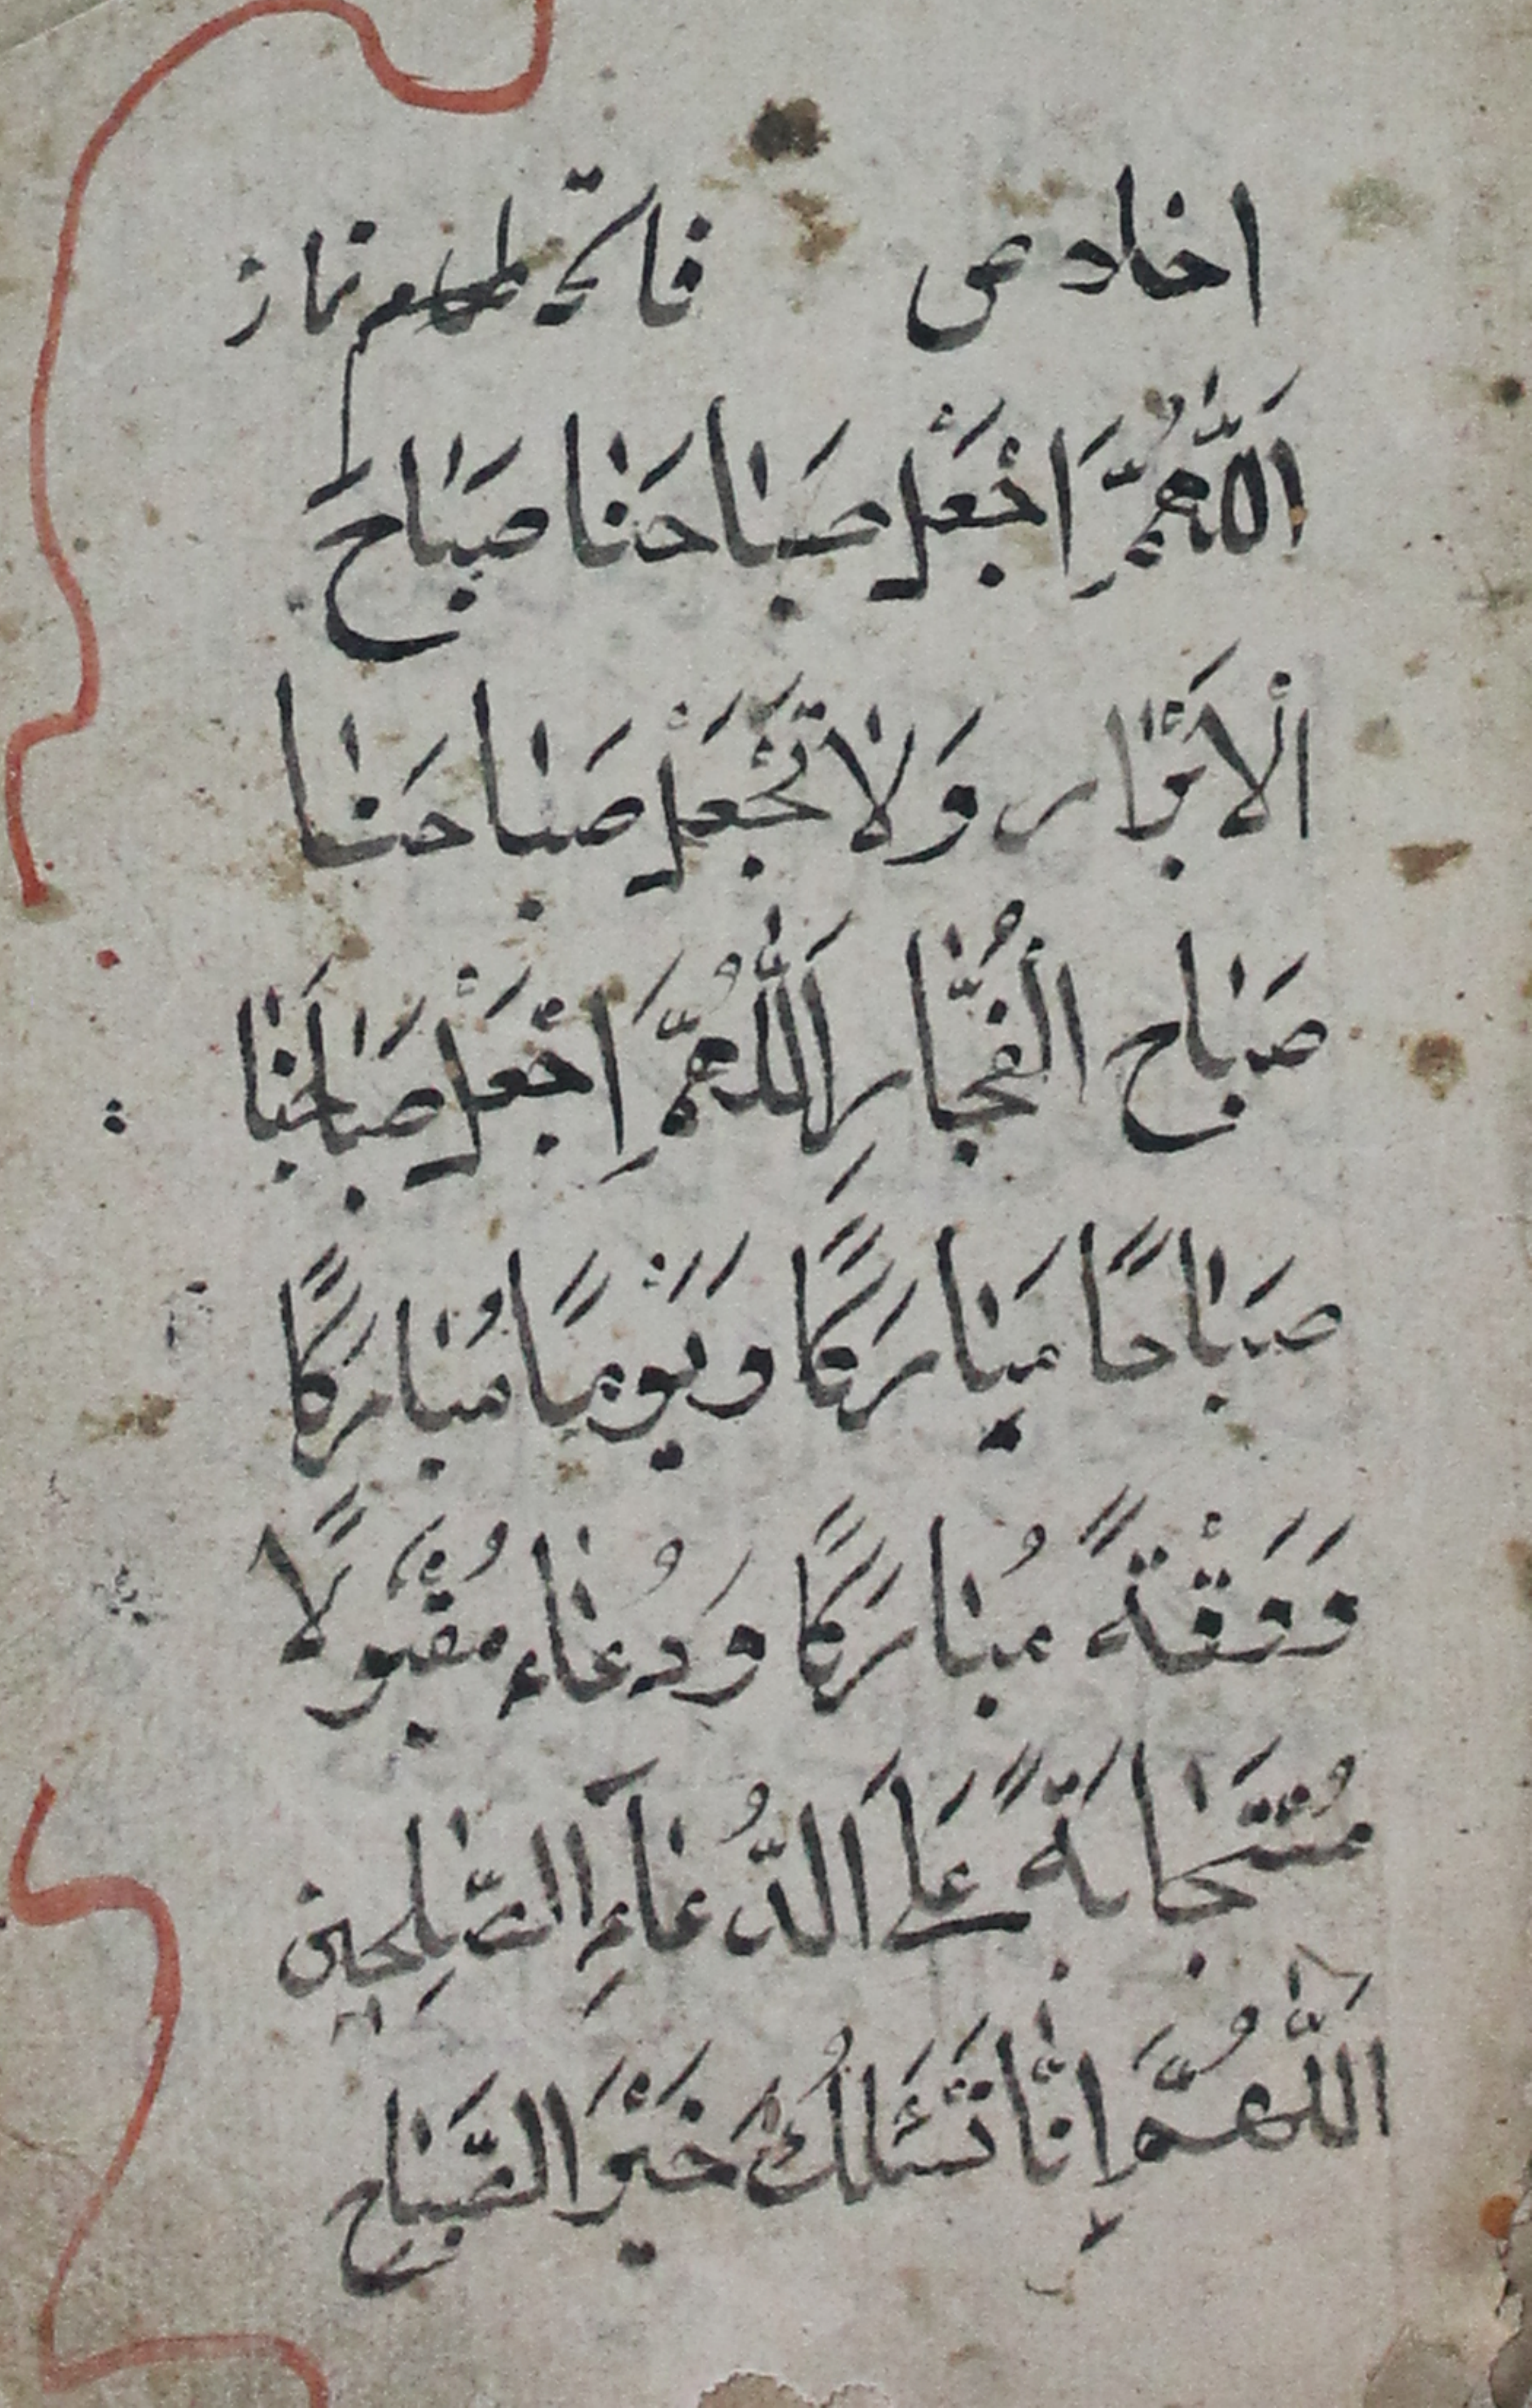 فاتحة نماز
اَللّٰهُمَّ اِجْعَلْ صَبَاحَنَا صَبَاحَ
اَلْاَبْرَار وَلَا تَجْعَلْ صَبَاحَنَا
صَبَاح الْفُجَّارِ اَللّٰهُمَّ اِجْعَلْ صَبَاحَنَا
صَبَاحًا مَبَارَكًا وَيَوْمًا مُبَارَكًا
وَوَقْتَةً مُبَارَكًا وَدُعَاء مُقْبُولًا
مُسْتَجَابَةً عَلَى الدُّعَاءِ الصّٰلِحِين
اَللّٰهُمَّ اِنَّا نَسْئَلُكَ خَيْرَ الصَّبَاح